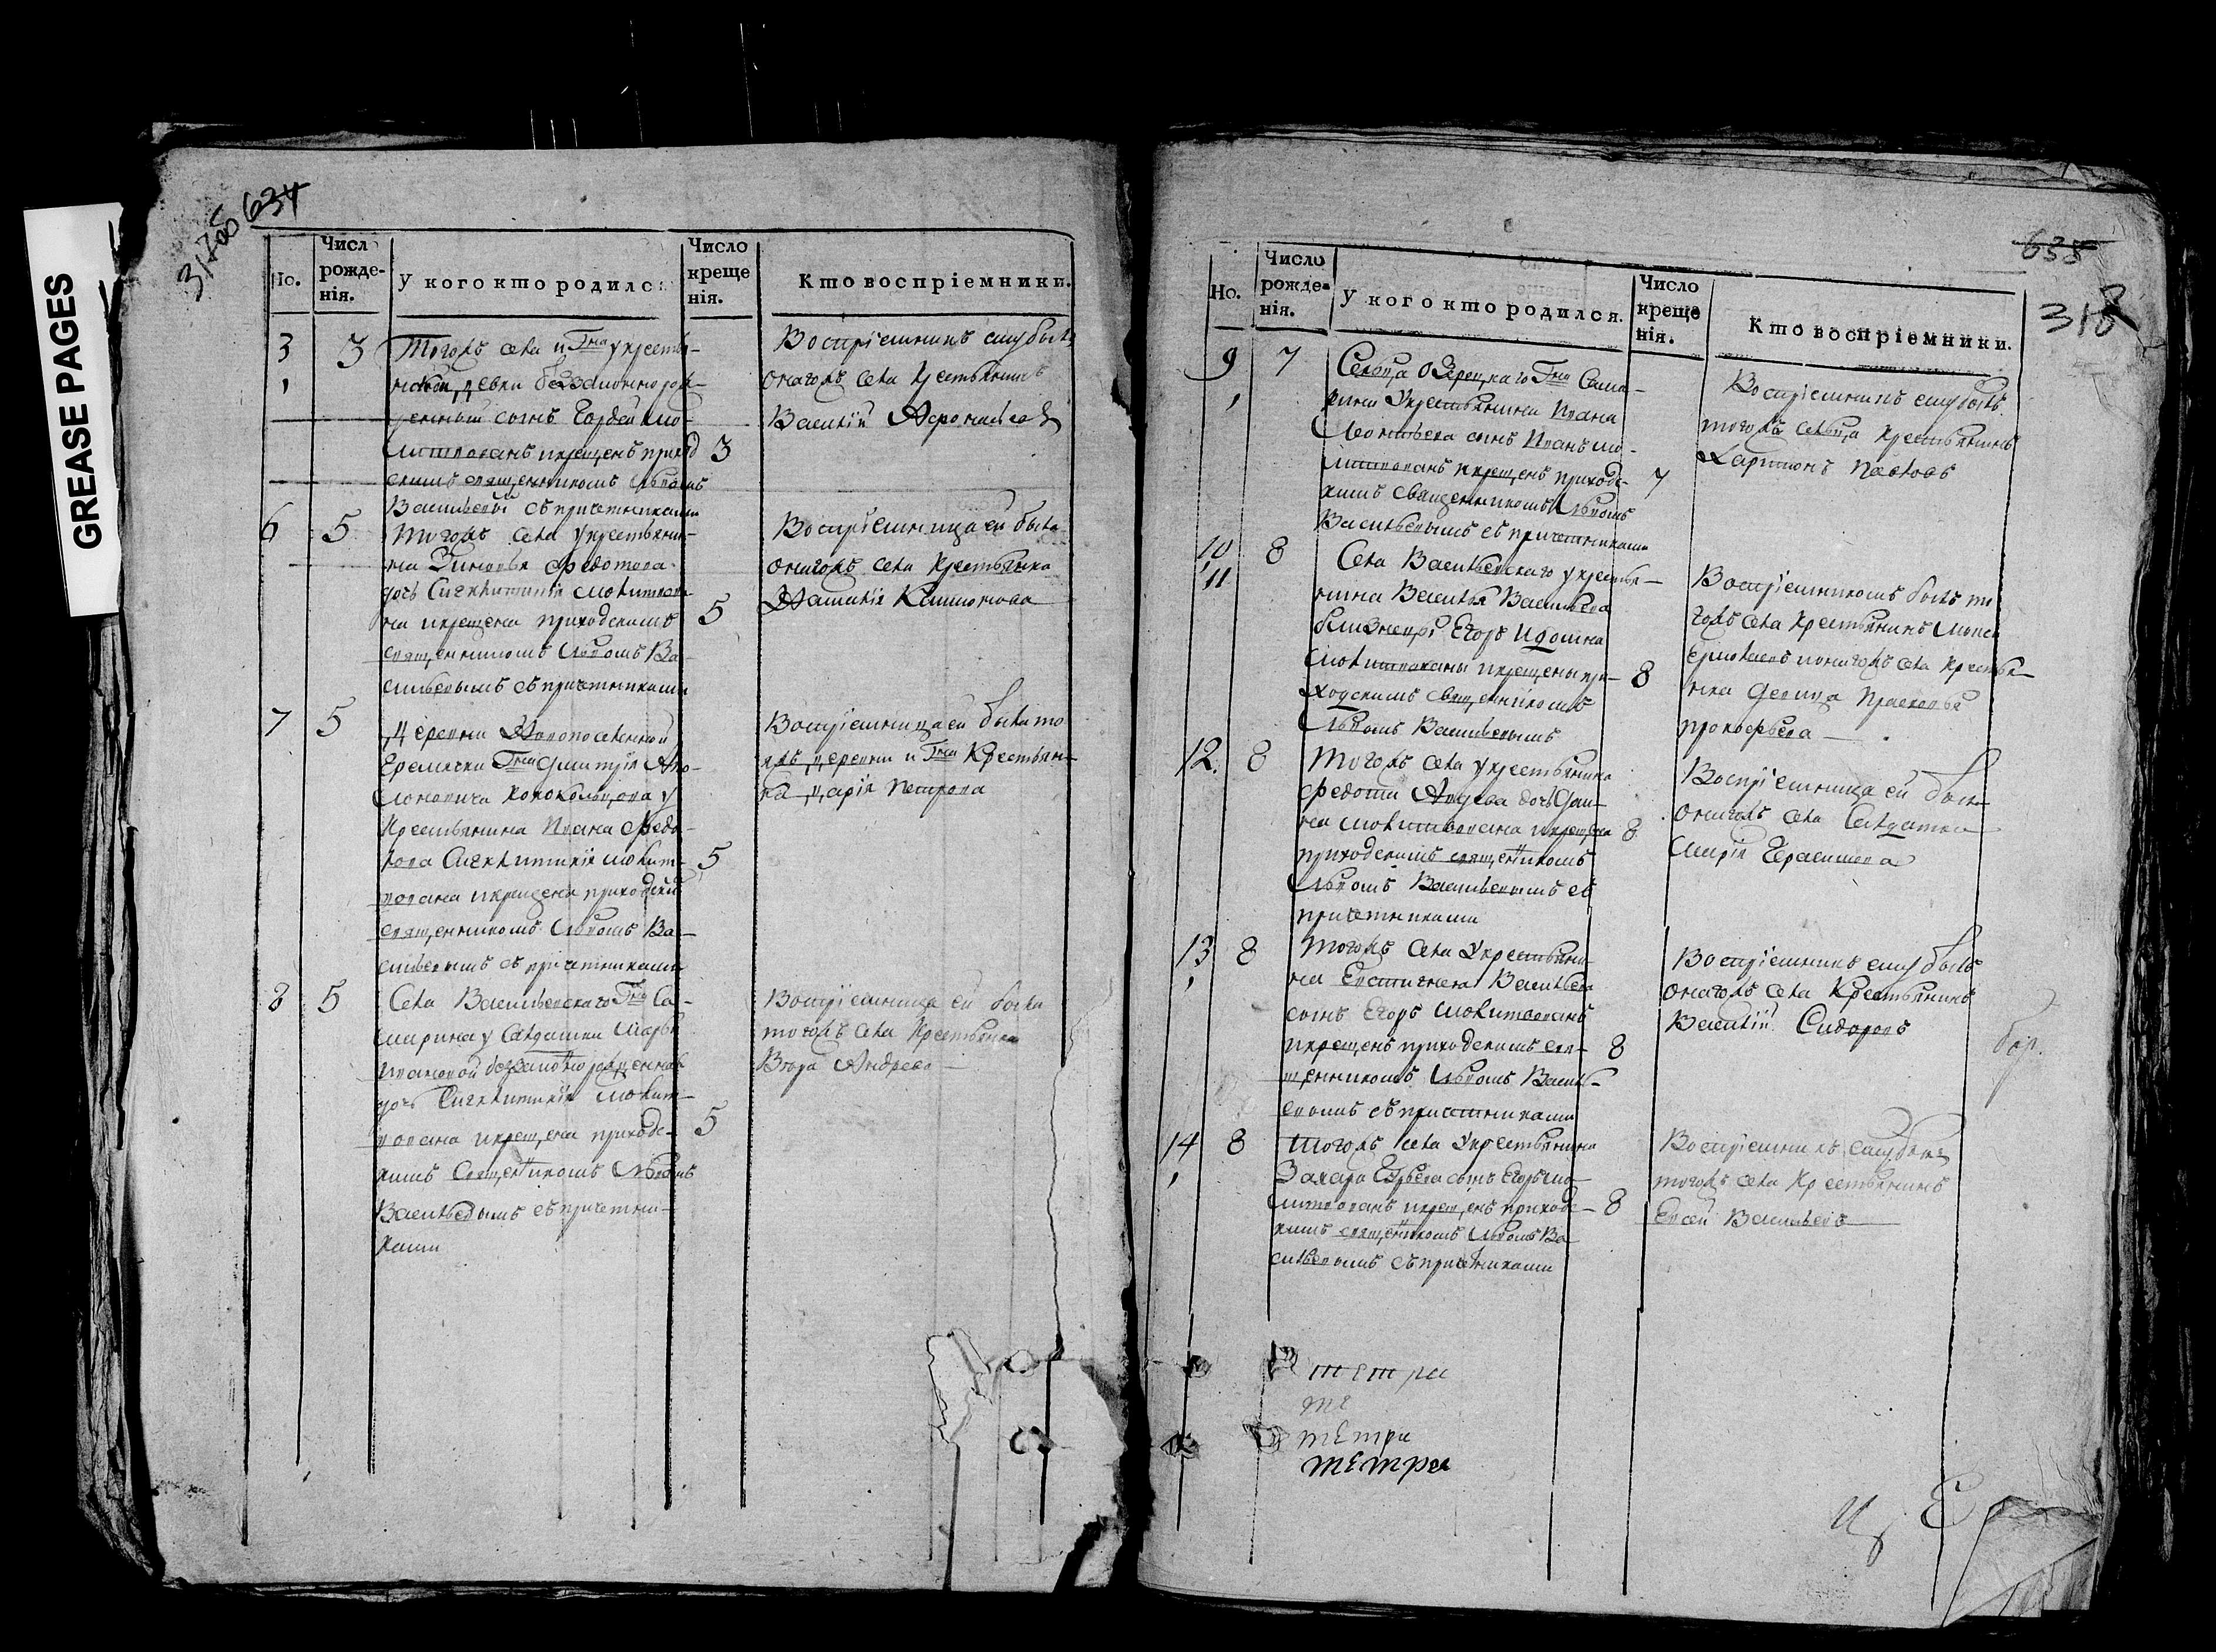 GREASE PAGES
634
Но.
Числ рожде-нія.
У кого кто родился
Число креще нія.
Кто воспріемники.
3 3 Тогожъ села и Гна укрестья-
нской девки беззаконно рож-
денный сынъ Гордей мо-
литвованъ икрещенъ приход 3
скимъ священникомъ Львомъ
Васильевы съпричетниками
Воспріемникъ ему былъ
оногожъ села крестьянинъ
Василій Афонасьев
6 5 Тогожъ села укрестьяни-
на Зиновья Федотова
дочь Сигклитикія молитвова
на икрещена приходскимъ 5
священникомъ Львомъ Ва-
сильевымъ съпричетниками
Воспріемница ей была
оногожъ села крестьянка
7 5 Деревни Новопоселенной
Еремички Гна Дмитрія Апо-
лоновича Колокольцова у
крестьянина Ивана Федо-
Сигклитикія молит- 5
вована икрещена приходским
священникомъ Львомъ Ва-
сильевымъ съпричетниками
Воспріемница ей была то
яжъ деревни и Гна Крестьян-
ка Дарія Петрова
8 5 Села Васильевскаго Гна Са-
марина у салдатки Марьи
Ивановой беззаконнорожденная
дочь Сигклитикія молит-
вована икрещена приходс- 5
кимъ Священникомъ Львомъ
Васильевымъ съпричетни-
ками
Воспріемница ей была
тогожъ села Крестьянка
Вѣра Андреева
635
318
Но.
Число рожде-нія.
У кого кто родился.
Число креще нія.
Кто воспріемники.
9 7 Сельца Озерецкаго Гна Сама-
рина Укрестьянина Ивана
Леонтьева сынъ Иванъ мо-
литвованъ икрещенъ приходс- 7
кимъ священникомъ Львомъ
Васильевымъ съпричетниками
Воспріемникъ ему былъ
тогожъ сельца крестьянинъ
Ларионъ Павловъ
10 8 Села Васильевскаго укрестья-
11 нина Василья Васильева
близнецы Егоръ иДомна
молитвованы икрещены при- 8
ходскимъ священникомъ
Львомъ Васильевымъ
Воспріемникомъ былъ то
гожъ села крестьянинъ
Ермолаевъ ионагожъ села крестья-
нка девица Прасковья
Прокофьева
12. 8 Тогожъ села укрестьянина
Федота дочь Дом-
на молитвована икрещена 8
приходскимъ священникомъ
Львомъ Васильевымъ съ
причетниками
Воспріемница ей была
оногожъ села Салдатка
Марія Герасимова
13 8 Тогожъ села Укрестьяни-
на Евстигнея Васильева
сынъ Егоръ молитвованъ
икрещенъ приходскимъ свя- 8
щенникомъ Львомъ Василь-
евымъ съпричетниками
Воспріемникъ ему былъ
онагожъ села Крестьянинъ
Василій Сидоровъ
14 8 Тогожъ села Укрестьянина
Захара сынъ Егоръ мо-
литвованъ икрещенъ приходс- 8
кимъ священникомъ Львомъ Ва
сильевымъ съпричетниками
Воспріемникъ ему былъ
тогожъ села Крестьянинъ
Евсей Васильевъ
тетра
те
тетра
тетра